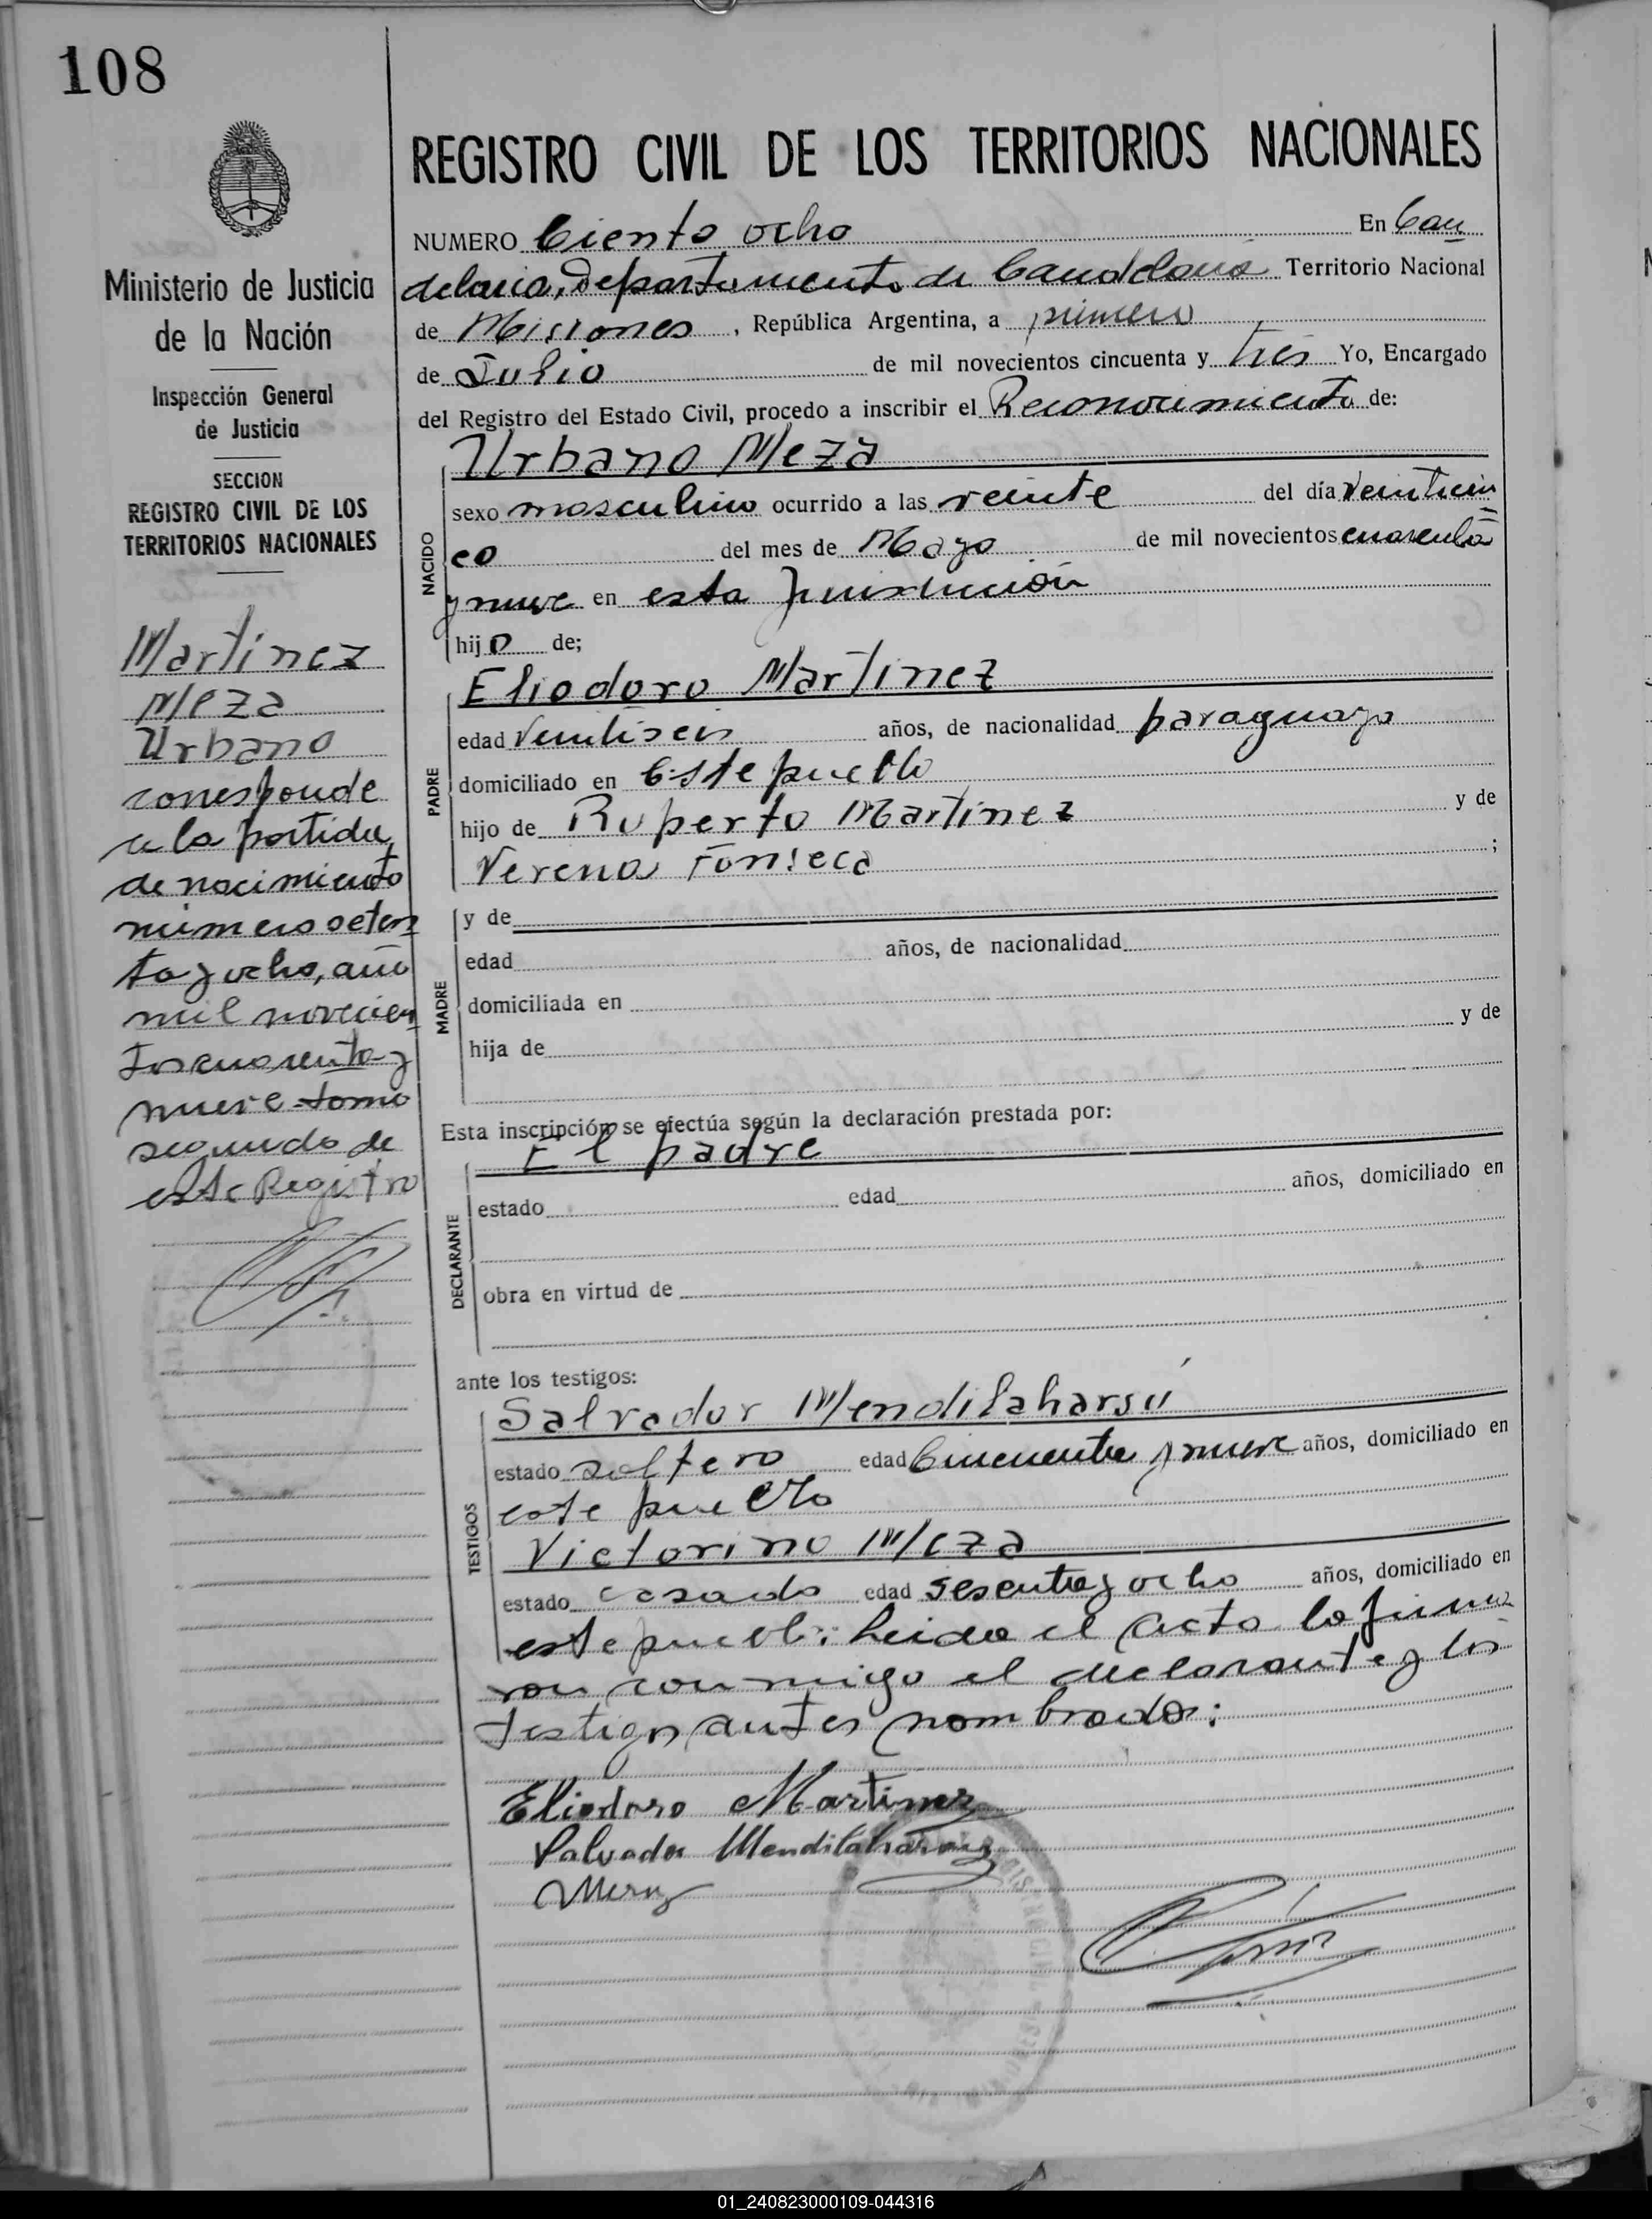 108
REGISTRO CIVIL DE LOS TERRITORIOS NACIONALES
Ministerio de Justicia
de la Nación
Inspección General
de Justicia
SECCION
REGISTRO CIVIL DE LOS
TERRITORIOS NACIONALES
Martinez
Meza
Urbano
corresponde
a la partida
de nacimiento
numero seten
ta y ocho, año
mil novecien
tos cuarenta y
nueve tomo
segundo de
este Registro
NUMERO Ciento ocho En Can
delaria, departamento de Candelaria Territorio Nacional
de Misiones, República Argentina, a primero
de Julio de mil novecientos cincuenta y tres Yo, Encargado
del Registro del Estado Civil, procedo a inscribir el Reconocimiento de:
Urbano Meza
NACIDO
sexo masculino ocurrido a las veinte del día veinticin
co del mes de Mayo de mil novecientos cuarenta
y nueve en esta Jurisdicción
hijo de;
PADRE
Eliodoro Martinez
edad Veintiseis años, de nacionalidad paraguayo
domiciliado en Este pueblo
hijo de Ruperto Martinez y de
Verena Fonseca ;
MADRE
y de
edad años, de nacionalidad
domiciliada en
hija de y de
Esta inscripción se efectúa según la declaración prestada por:
El padre
DECLARANTE
estado edad años, domiciliado en
obra en virtud de
ante los testigos:
TESTIGOS
Salvador Mendilaharsú
estado soltero edad Cincuenta y nueve años, domiciliado en
este pueblo
Victorino Meza
estado casado edad sesenta y ocho años, domiciliado en
este pueblo: Leida el acta la firma
ron conmigo el declarante y los
testigos antes nombrados:
Eliodoro Martinez
Salvador Mendilaharsu
Meza
01_240823000109-044316